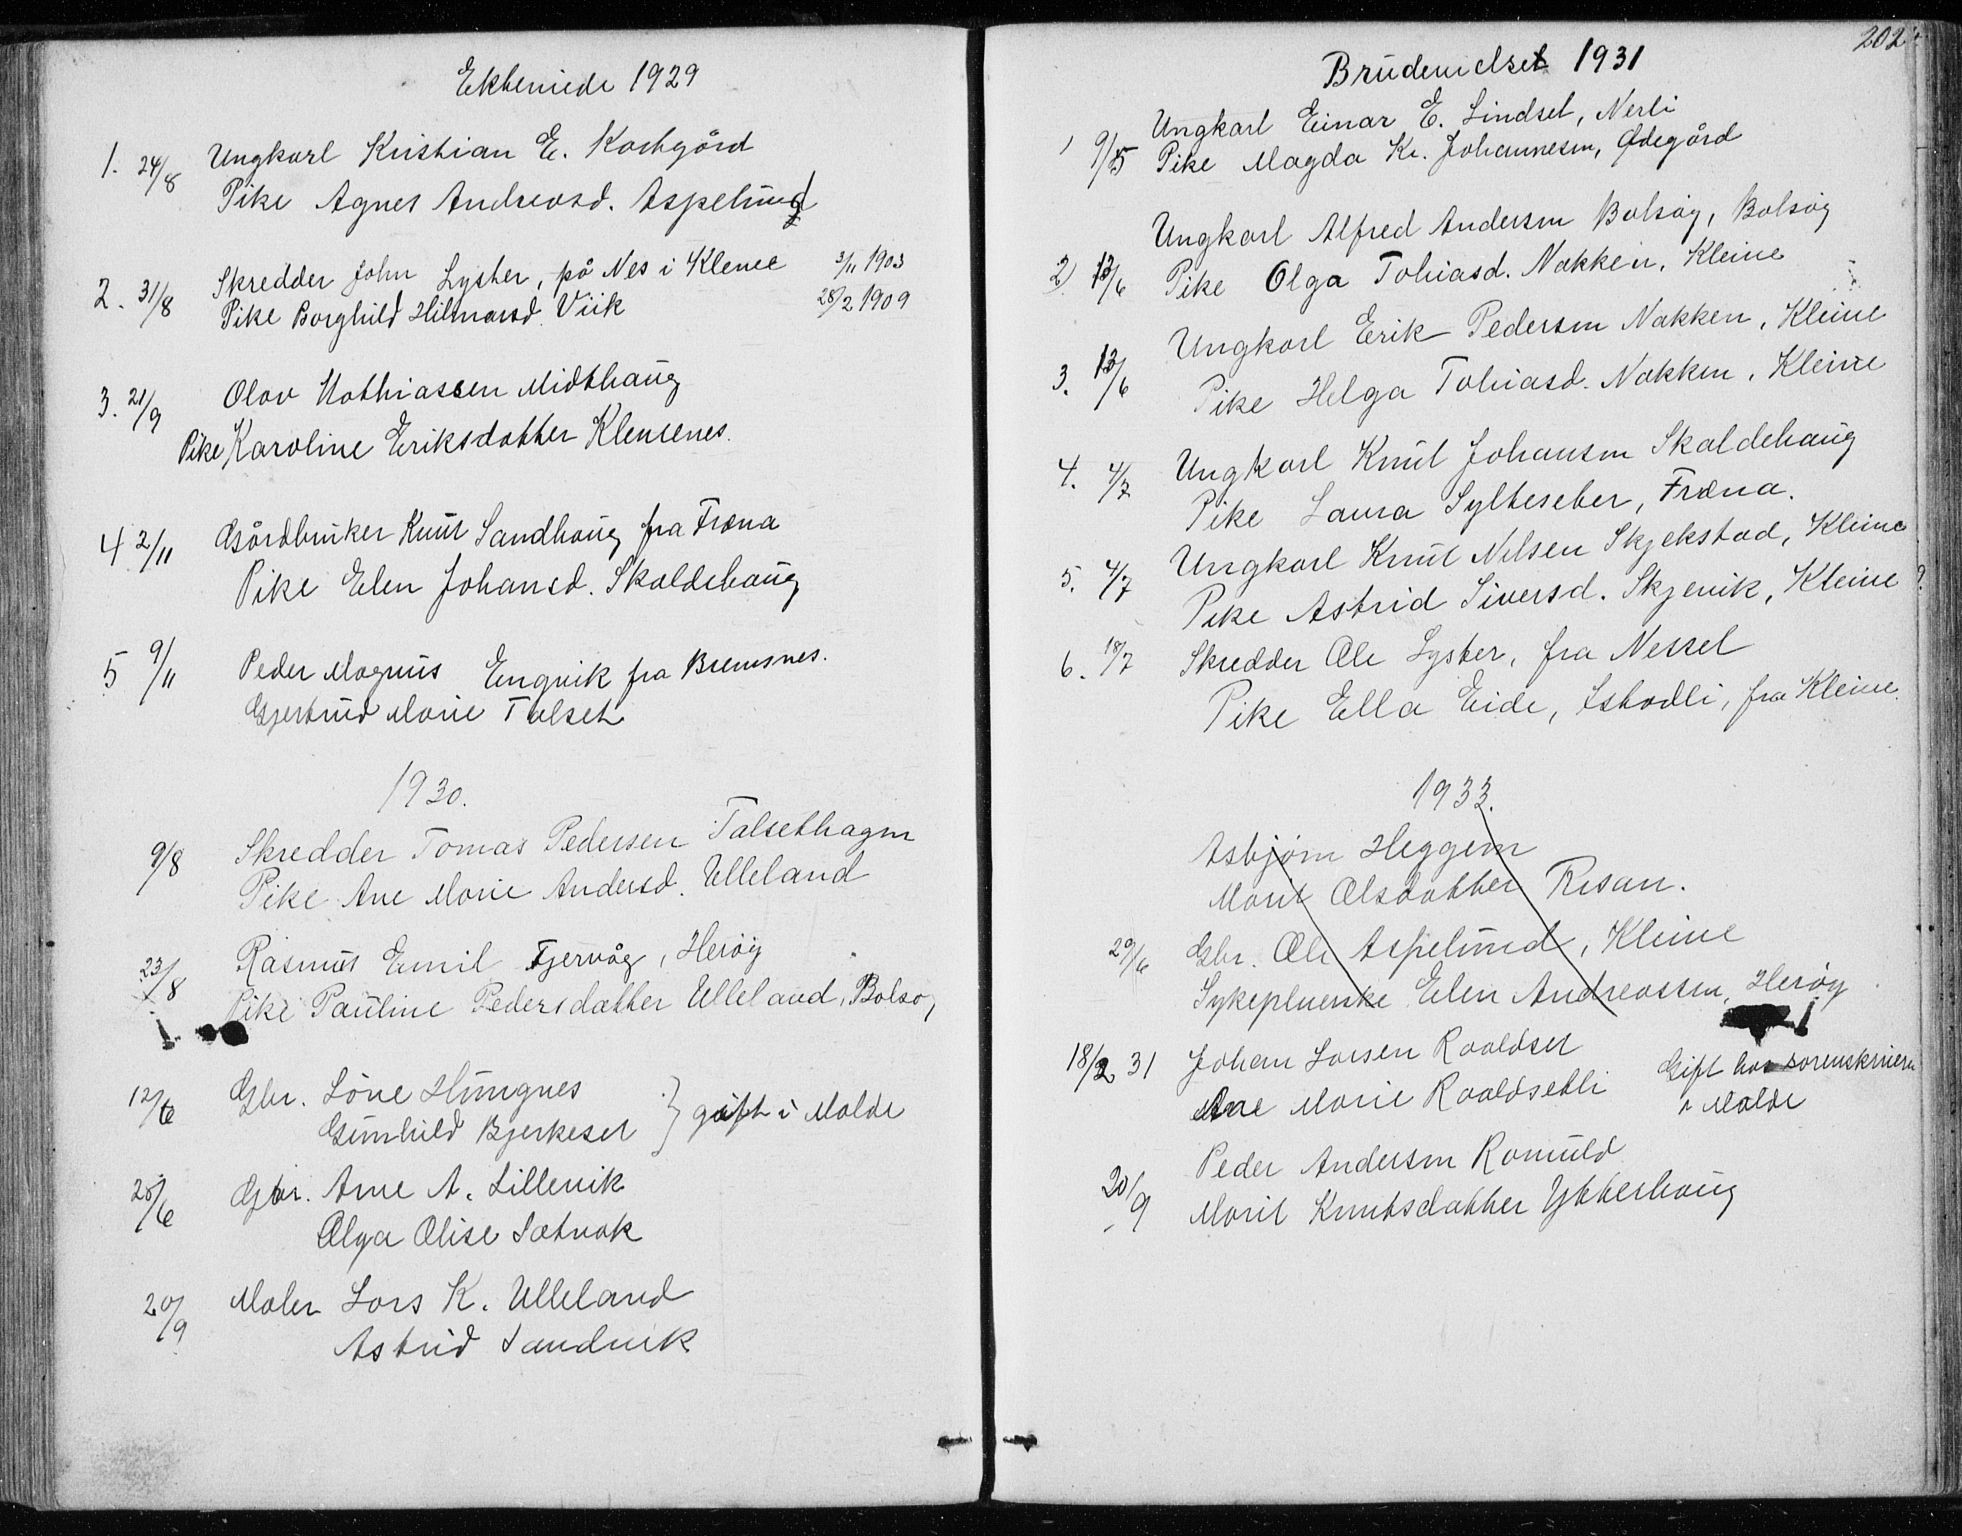 Ekteviede 1929
1. 24/8 Ungkarl Kristian E. Korsgård
Pike Agnes Andreasd. Aspelund
2. 31/8 Skredder John Lyster, på Nes i Kleive 3/11 1903
Pike Borghild Hilmarsd. Viik 28/2 1909
3. 21/9 Olav Mathiassen Midthaug
Pike Karoline Eriksdatter Klevenes.
4 2/11 Gårdbruker Knut Sandhaug fra Fræna
Pike Elen Johansd. Skaldehaug
5 9/11 Peder Magnus Engvik fra Bremsnes.
Gjertrud Marie Talset
1930.
9/8 Skredder Tomas Pedersen Talsethagen
Pike Ane Marie Andersd. Ulleland
23/8 Rasmus Emil Fjervåg, Herøy
Pike Pauline Pedersdatter Ulleland, Bolsøy
12/6 Gbr. Löve Hungnes
Gunhild Bjerkeset } gift i Molde
28/6 Gbr. Arne A. Lillevik
Olga Olise Sætnak
20/9 Maler Lars K. Ulleland
Astrid Sandvik
202
Brudevielset 1931
1 9/5 Ungkarl Einar E. Lindset, Nerli
Pike Magda Kr. Johannesen, Ødegård
2) 13/6 Ungkarl Alfred Andersen Bolsøy, Bolsøy
Pike Olga Tobiasd. Nakken, Kleive
3. 13/6 Ungkarl Erik Pedersen Nakken, Kleive
Pike Helga Tobiasd. Nakken, Kleive
4. 4/7 Ungkarl Knut Johansen Skaldehaug
Pike Laura Sylteseter, Fræna.
5. 4/7 Ungkarl Knut Nilsen Skjekstad, Kleive
Pike Astrid Siversd. Skjevik, Kleive ?
6. 18/7 Skredder Ole Lyster, fra Nesset
Pike Ella Eide, Istadli, fra Kleive.
1933.
Asbjørn Heggem
Marit Olsdatter Risan.
29/6 Gbr. Ole Aspelund, Kleive
Sykepleierske Elen Andreassen, Herøy
18/2 31 Johan Larsen Roaldset
Ane Marie Roaldsetli Gift hos sorenskriveren
i Molde
20/9 Peder Andersen Romuld
Marit Knutsdatter Ytterhaug